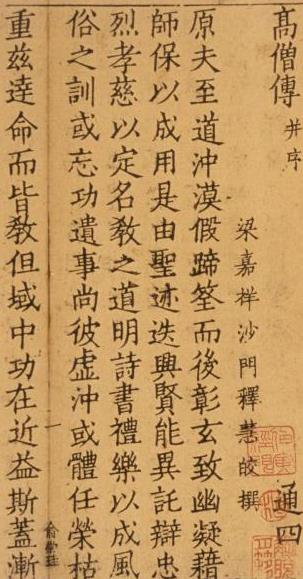 高僧傳 并序 通四
梁嘉祥沙門釋慧皎撰
原夫至道沖漠假蹄筌而後彰玄致幽凝藉
師保以成用是由聖迹迭興賢能異託辯忠
烈孝慈以定名教之道明詩書禮樂以成風
俗之訓或忘功遺事尚彼虛沖或體任榮枯
重茲達命而皆教但域中功在近益斯蓋漸
一